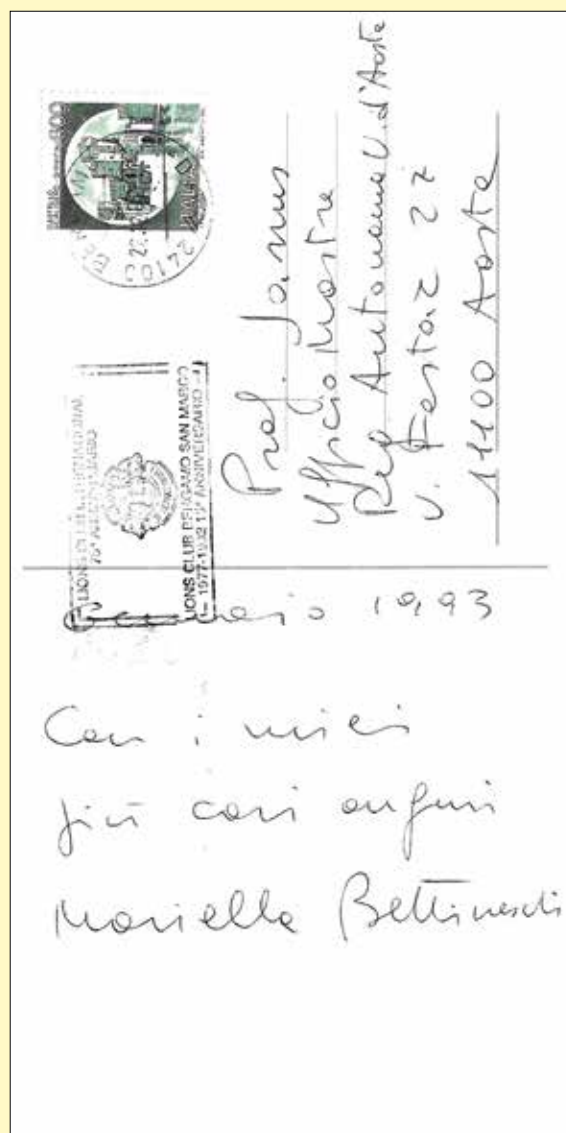 LIONS CLUB INTERNATIONAL
75° ANNIVERSARIO
LIONS CLUB BERGAMO SAN MARCO
1977-1992 15° ANNIVERSARIO
24100
Prof. Janus
Ufficio Mostre
Reg Autonoma V. d'Aosta
v. Festaz 22
11100 Aosta
Gennaio 1993
Con i miei
più cari auguri
Mariella Bettineschi